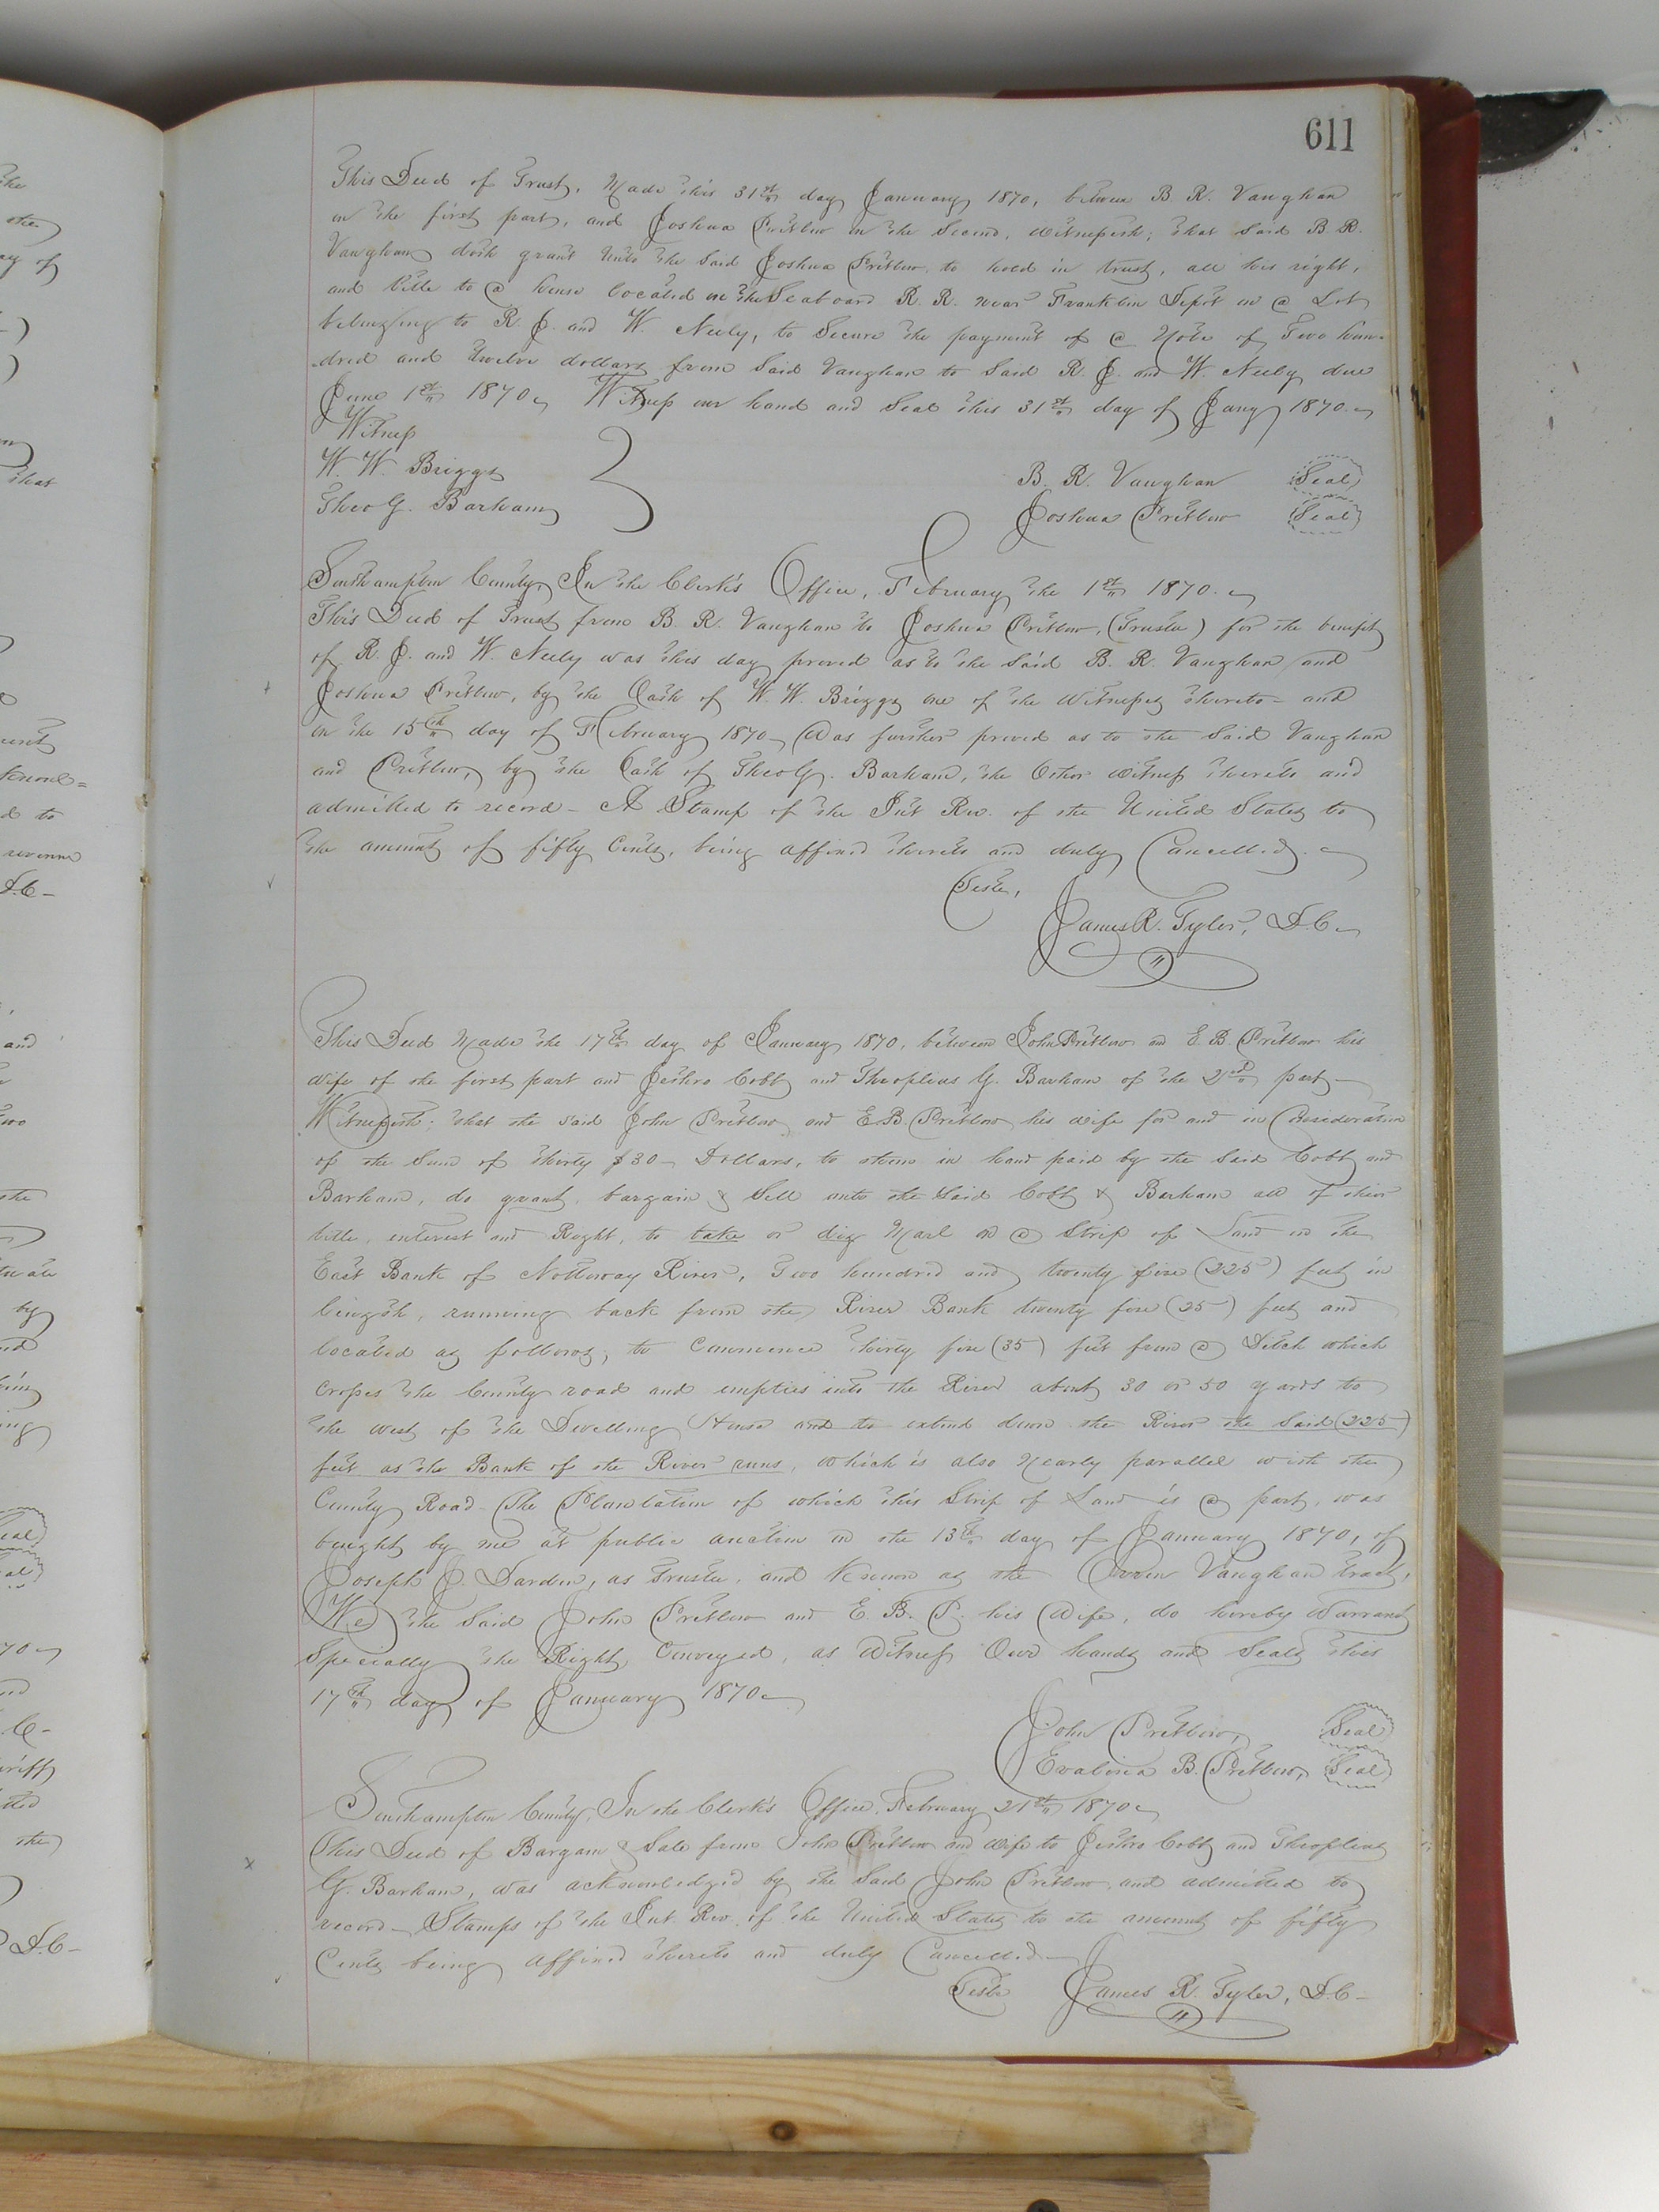 611
This Deed of Trust, Made this 31st day January 1870, between B. R. Vaughan
on the first part, and Joshua Pretlow on the Second, Witnesseth; that said B R.
Vaughan doth grant unto the said Joshua Pretlow, to hold in trust, all his right,
and title to a house located on the Seaboard R. R. near Franklin Depot on a Lot
belonging to R. J. and W. Neely, to secure the payment of a Note of Two hun-
dred and twelve dollars from said Vaughan to said R. J. and W. Neely due
June 1st 1870, Witness our hand and Seal this 31st day of Jany 1870.
Witness
W. W. Briggs
Theo G. Barham
B. R. Vaughan Seal
Joshua Pretlow Seal
Southampton County, In the Clerk's Office, February the 1st 1870.
This Deed of Trust from B. R. Vaughan to Joshua Pretlow, (Trustee) for the benefit
of R. J. and W. Neely was this day proved as to the said B. R. Vaughan and
Joshua Pretlow, by the Oath of W. W. Briggs one of the Witnesses thereto - and
on the 15th day of February 1870 Was further proved as to the said Vaughan
and Pretlow, by the Oath of Theo G. Barham, the Other witness thereto and
admitted to record - A Stamp of the Int Rev. of the United States to
the amount of fifty Cents, being affixed thereto and duly Cancelled.
Teste,
James R. Tyler, D. C.
This Deed Made the 17th day of January 1870, between John Pretlow and E. B. Pretlow his
wife of the first part and Jethro Cobb and Theoplius G. Barham of the 2nd part
Witnesseth; that the said John Pretlow and E B. Pretlow his wife for and in Consideration
of the Sum of thirty $30 Dollars, to them in hand paid by the said Cobb and
Barham, do grant, bargain & Sell unto the said Cobb & Barham all of their
title, interest and Right, to take or dig Marl on a Strip of Land on the
East Bank of Nottoway River, Two hundred and twenty five (225) feet in
length, running back from the River Bank twenty five (25) feet and
located as follows; to Commence thirty five (35) feet from a Ditch which
crosses the County road and empties into the River about 30 or 50 yards to
the west of the Dwelling House and to extend down the River the said (225)
feet as the Bank of the River runs, which is also Nearly parallel with the
County Road - The Plantation of which this Strip of Land is a part, was
bought by me at public auction on the 13th day of January 1870, of
Joseph J. Darden, as Trustee, and Known as the Vaughan tract,
We the said John Pretlow and E. B. P. his Wife, do hereby Warrant
Specially the Right Conveyed, as Witness Our hands and Seals this
17th day of January 1870
John Pretlow, Seal
Evalina B. Pretlow, Seal
Southampton County, In the Clerk's Office, February 21st 1870
This Deed of Bargain & Sale from John Pretlow and wife to Jethro Cobb and Theoplius
G. Barham, was acknowledged by the said John Pretlow, and admitted to
record - Stamps of the Int. Rev. of the United States to the amount of fifty
Cents being affixed thereto and duly Cancelled.
Teste James R. Tyler, D. C.